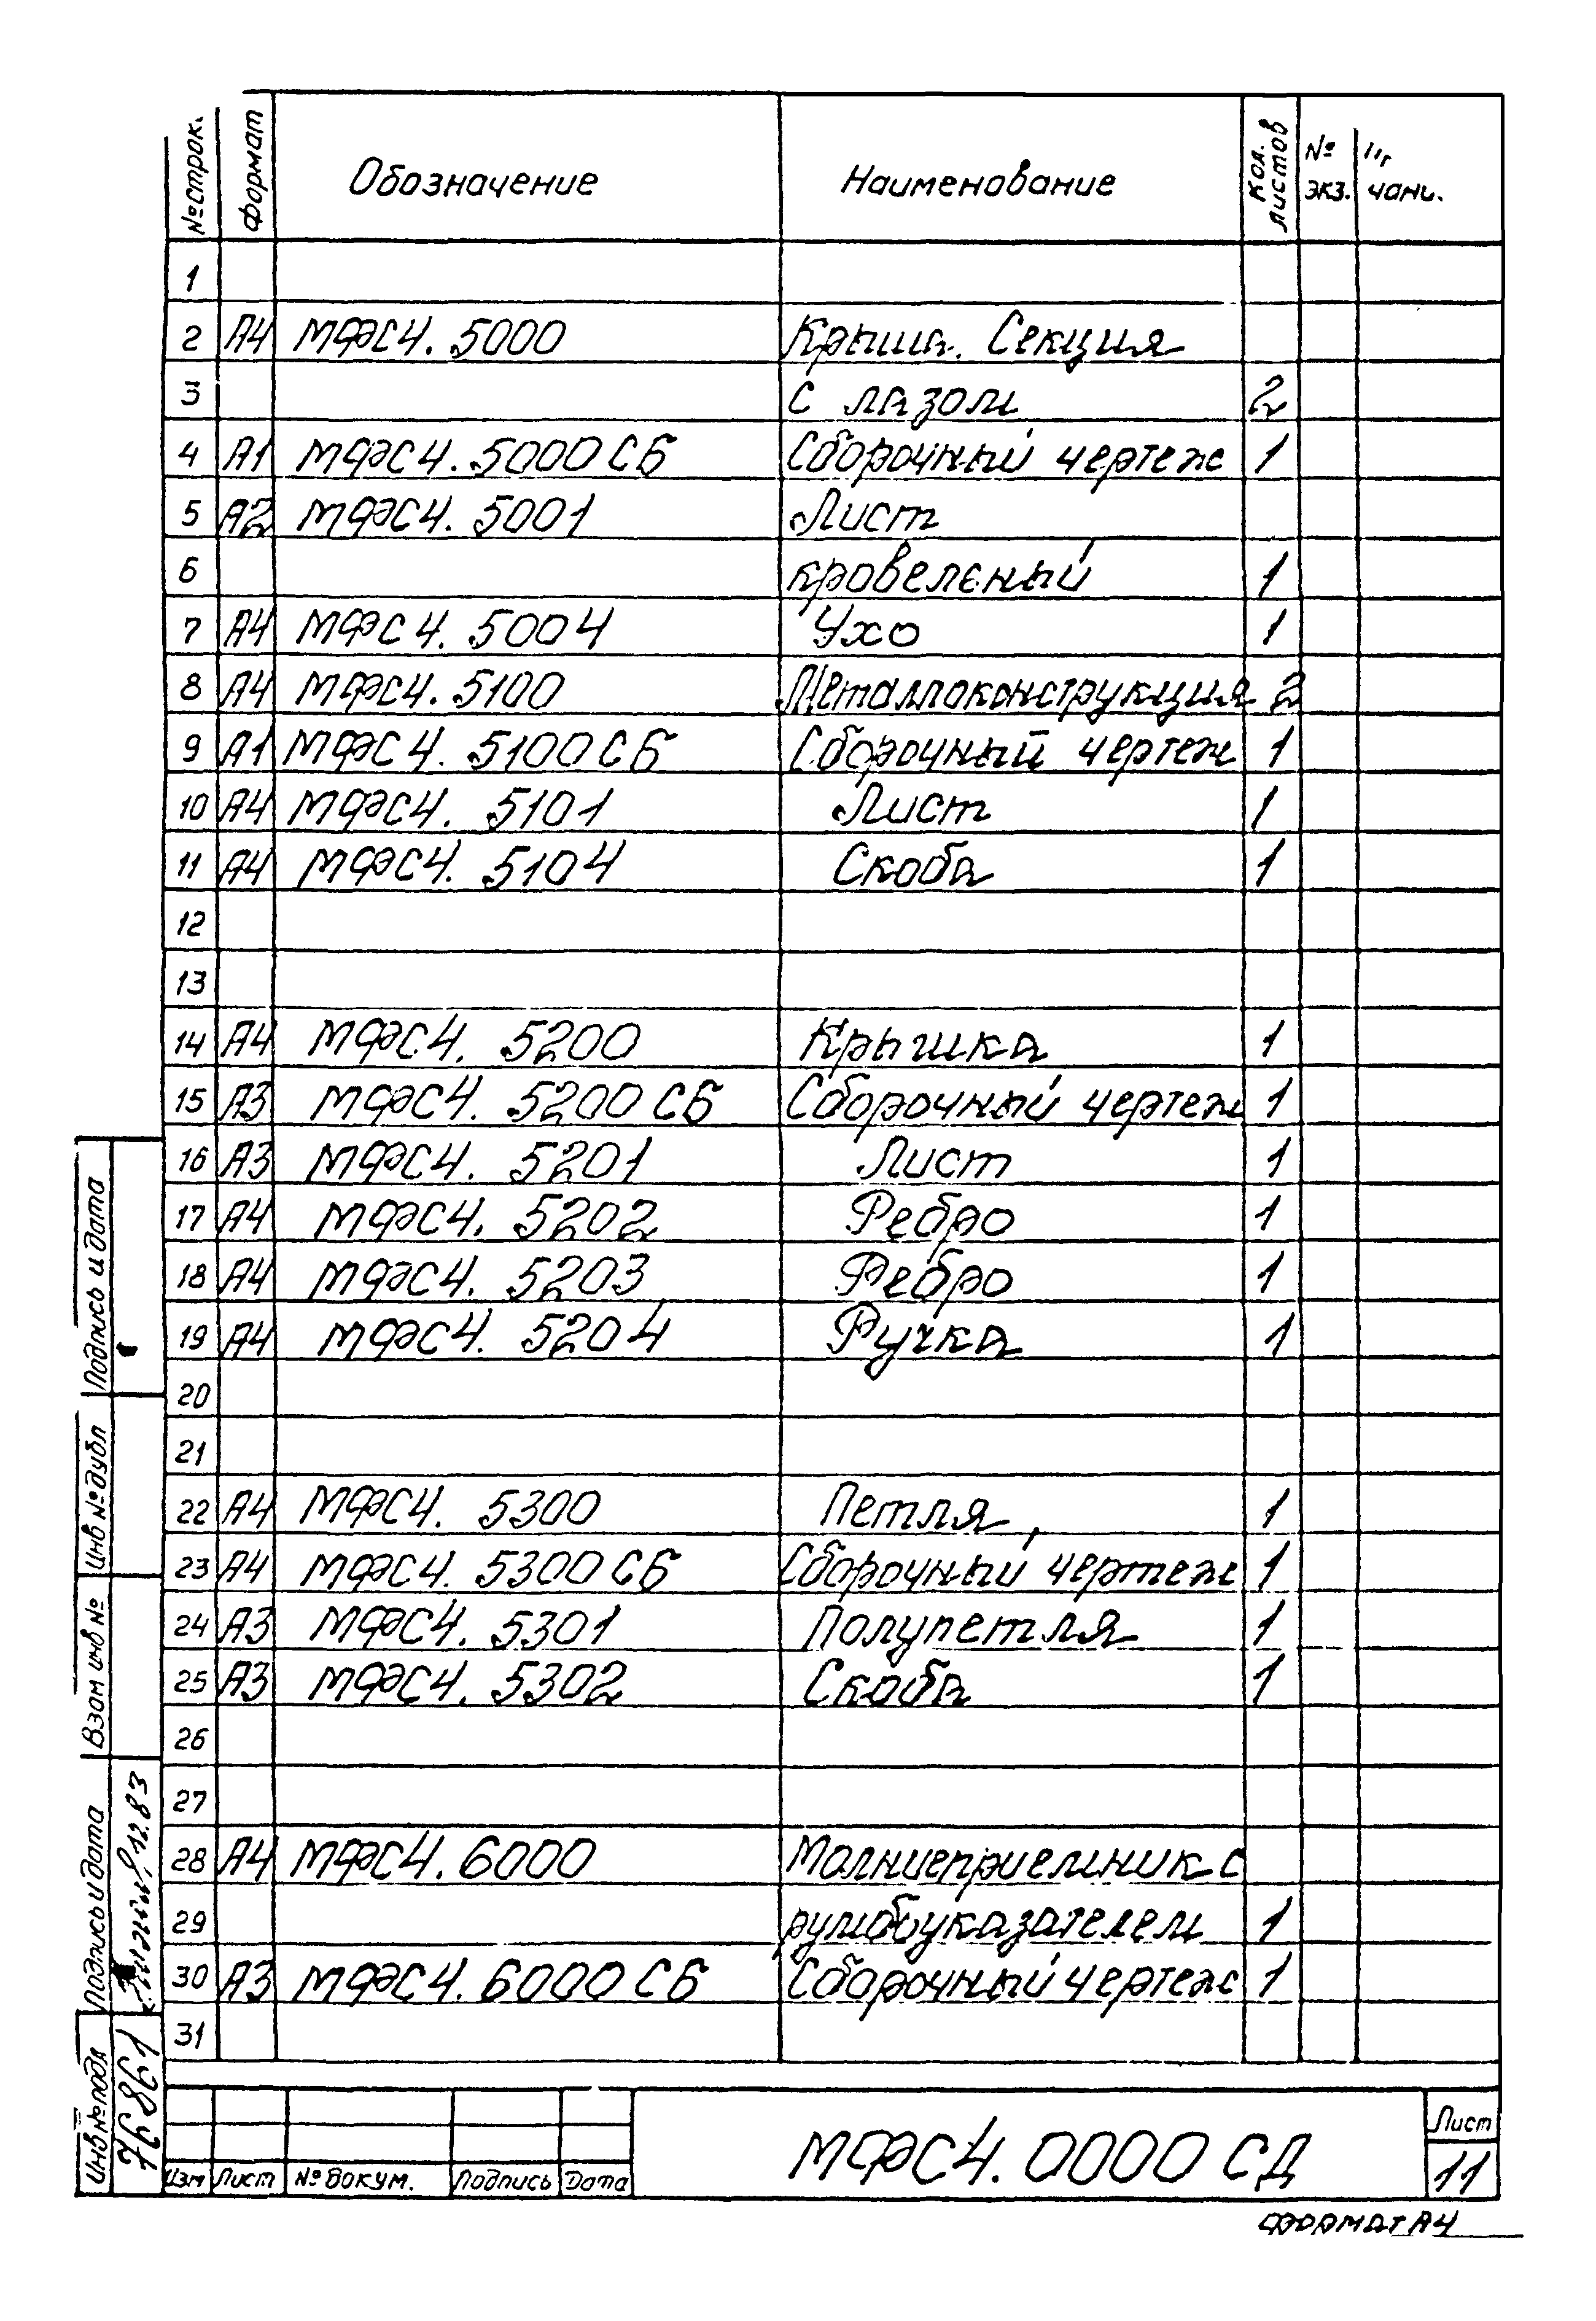 № строк. формат Обозначение Наименование Кол. листов № экз. чани.
1
2 А4 МФС4. 5000 Крыша. Секция
3 с лазом 2
4 А1 МФС4. 5000 СБ Сборочный чертеж 1
5 А2 МФС4. 5001 Лист
6 кровельный 1
7 А4 МФС4. 5004 Ухо 1
8 А4 МФС4. 5100 Металлоконструкция 2
9 А1 МФС4. 5100 СБ Сборочный чертеж 1
10 А4 МФС4. 5101 Лист 1
11 А4 МФС4. 5104 Скоба 1
12
13
14 А4 МФС4. 5200 Крышка 1
15 А3 МФС4. 5200 СБ Сборочный чертеж 1
16 А3 МФС4. 5201 Лист 1
17 А4 МФС4. 5202 Ребро 1
18 А4 МФС4. 5203 Ребро 1
19 А4 МФС4. 5204 Ручка 1
20
21
22 А4 МФС4. 5300 Петля 1
23 А4 МФС4. 5300 СБ Сборочный чертеж 1
24 А3 МФС4. 5301 Полупетля 1
25 А3 МФС4. 5302 Скоба 1
26
27
28 А4 МФС4. 6000 Молниеприемник с
29 румбоуказателем 1
30 А3 МФС4. 6000 СБ Сборочный чертеж 1
31
Подпись и дата
Инв № дубл
Взам инв №
Подпись и дата 12.83
Инв № подл 79861
Изм Лист № докум. Подпись Дата
МФС4. 0000 СД
Лист
11
формат А4